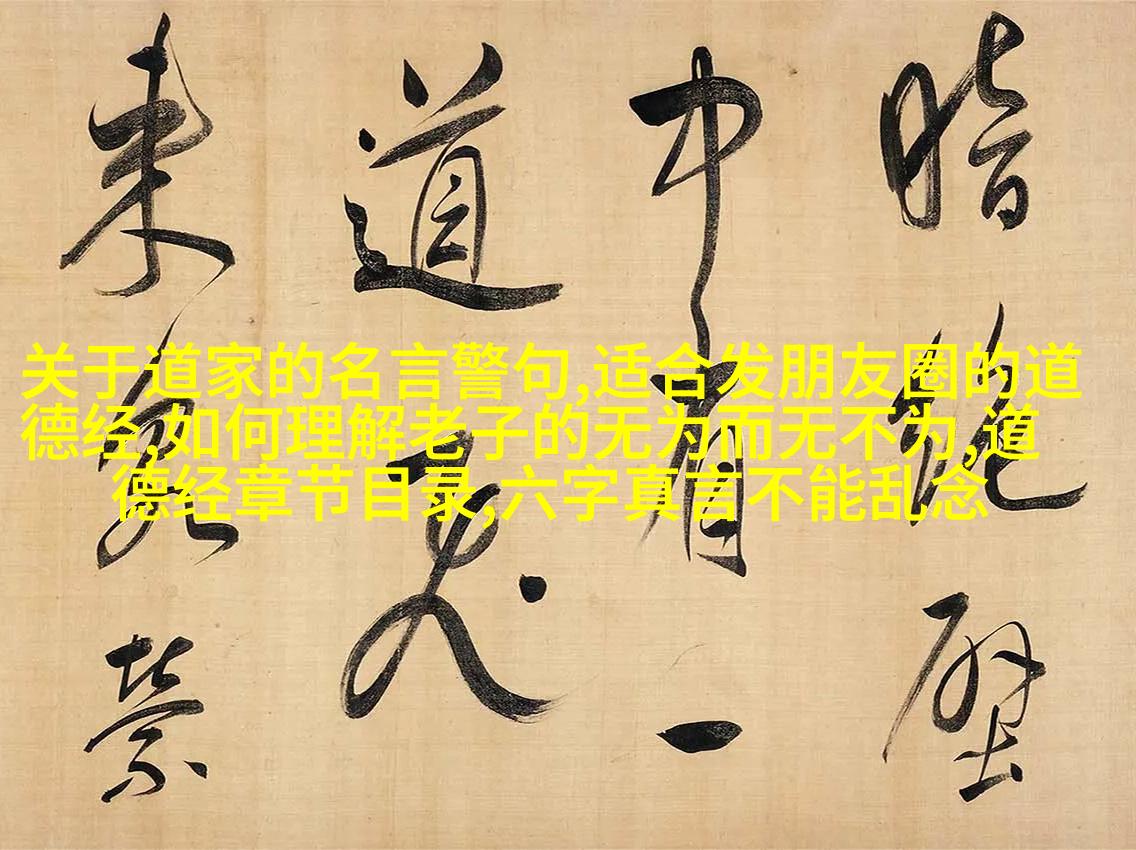 暗絶壁
中有一
道飛
来泉縈
关于道家的名言警句,适合发朋友圈的道
德经,如何理解老子的无为而无不为,道
德经章节目录,六字真言不能乱念